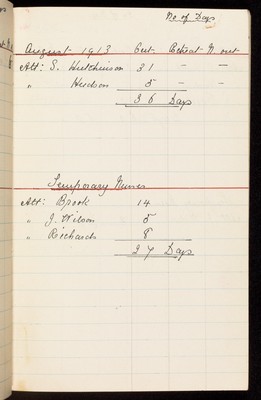 No of Days
August 1913 Out. Retreat N. out
Att: S. Hutchinson 31 – –
" Hudson 5 – –
36 Days
Temporary Nurses
Att: Brook 14
" J. Wilson 5
" Richards 8
27 Days